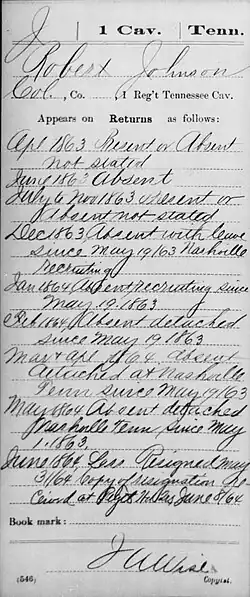 J | 1 Cav. | Tenn.
Robert Johnson
Col., Co. , 1 Reg't Tennessee Cav.
Appears on Returns as follows:
Apl 1863 Present or Absent
not stated
June 1863 Absent
July to Nov 1863 Present or
Absent not stated
Dec 1863 Absent with leave
since May 19/63 Nashville
recruiting
Jan 1864 Absent recruiting since
May 19, 1863
Feb 1864, Absent detached
since May 19 1863
Mar & Apl 1864, Absent
detached at Nashville
Tenn since May 19/63
May 1864 Absent detached
Nashville Tenn since May
1, 1863
June 1864 Loss Resigned May
31/64 Copy of resignation Re
ceived at Regt Hdqrs June 8/64
Book mark:
(546) Copyist.